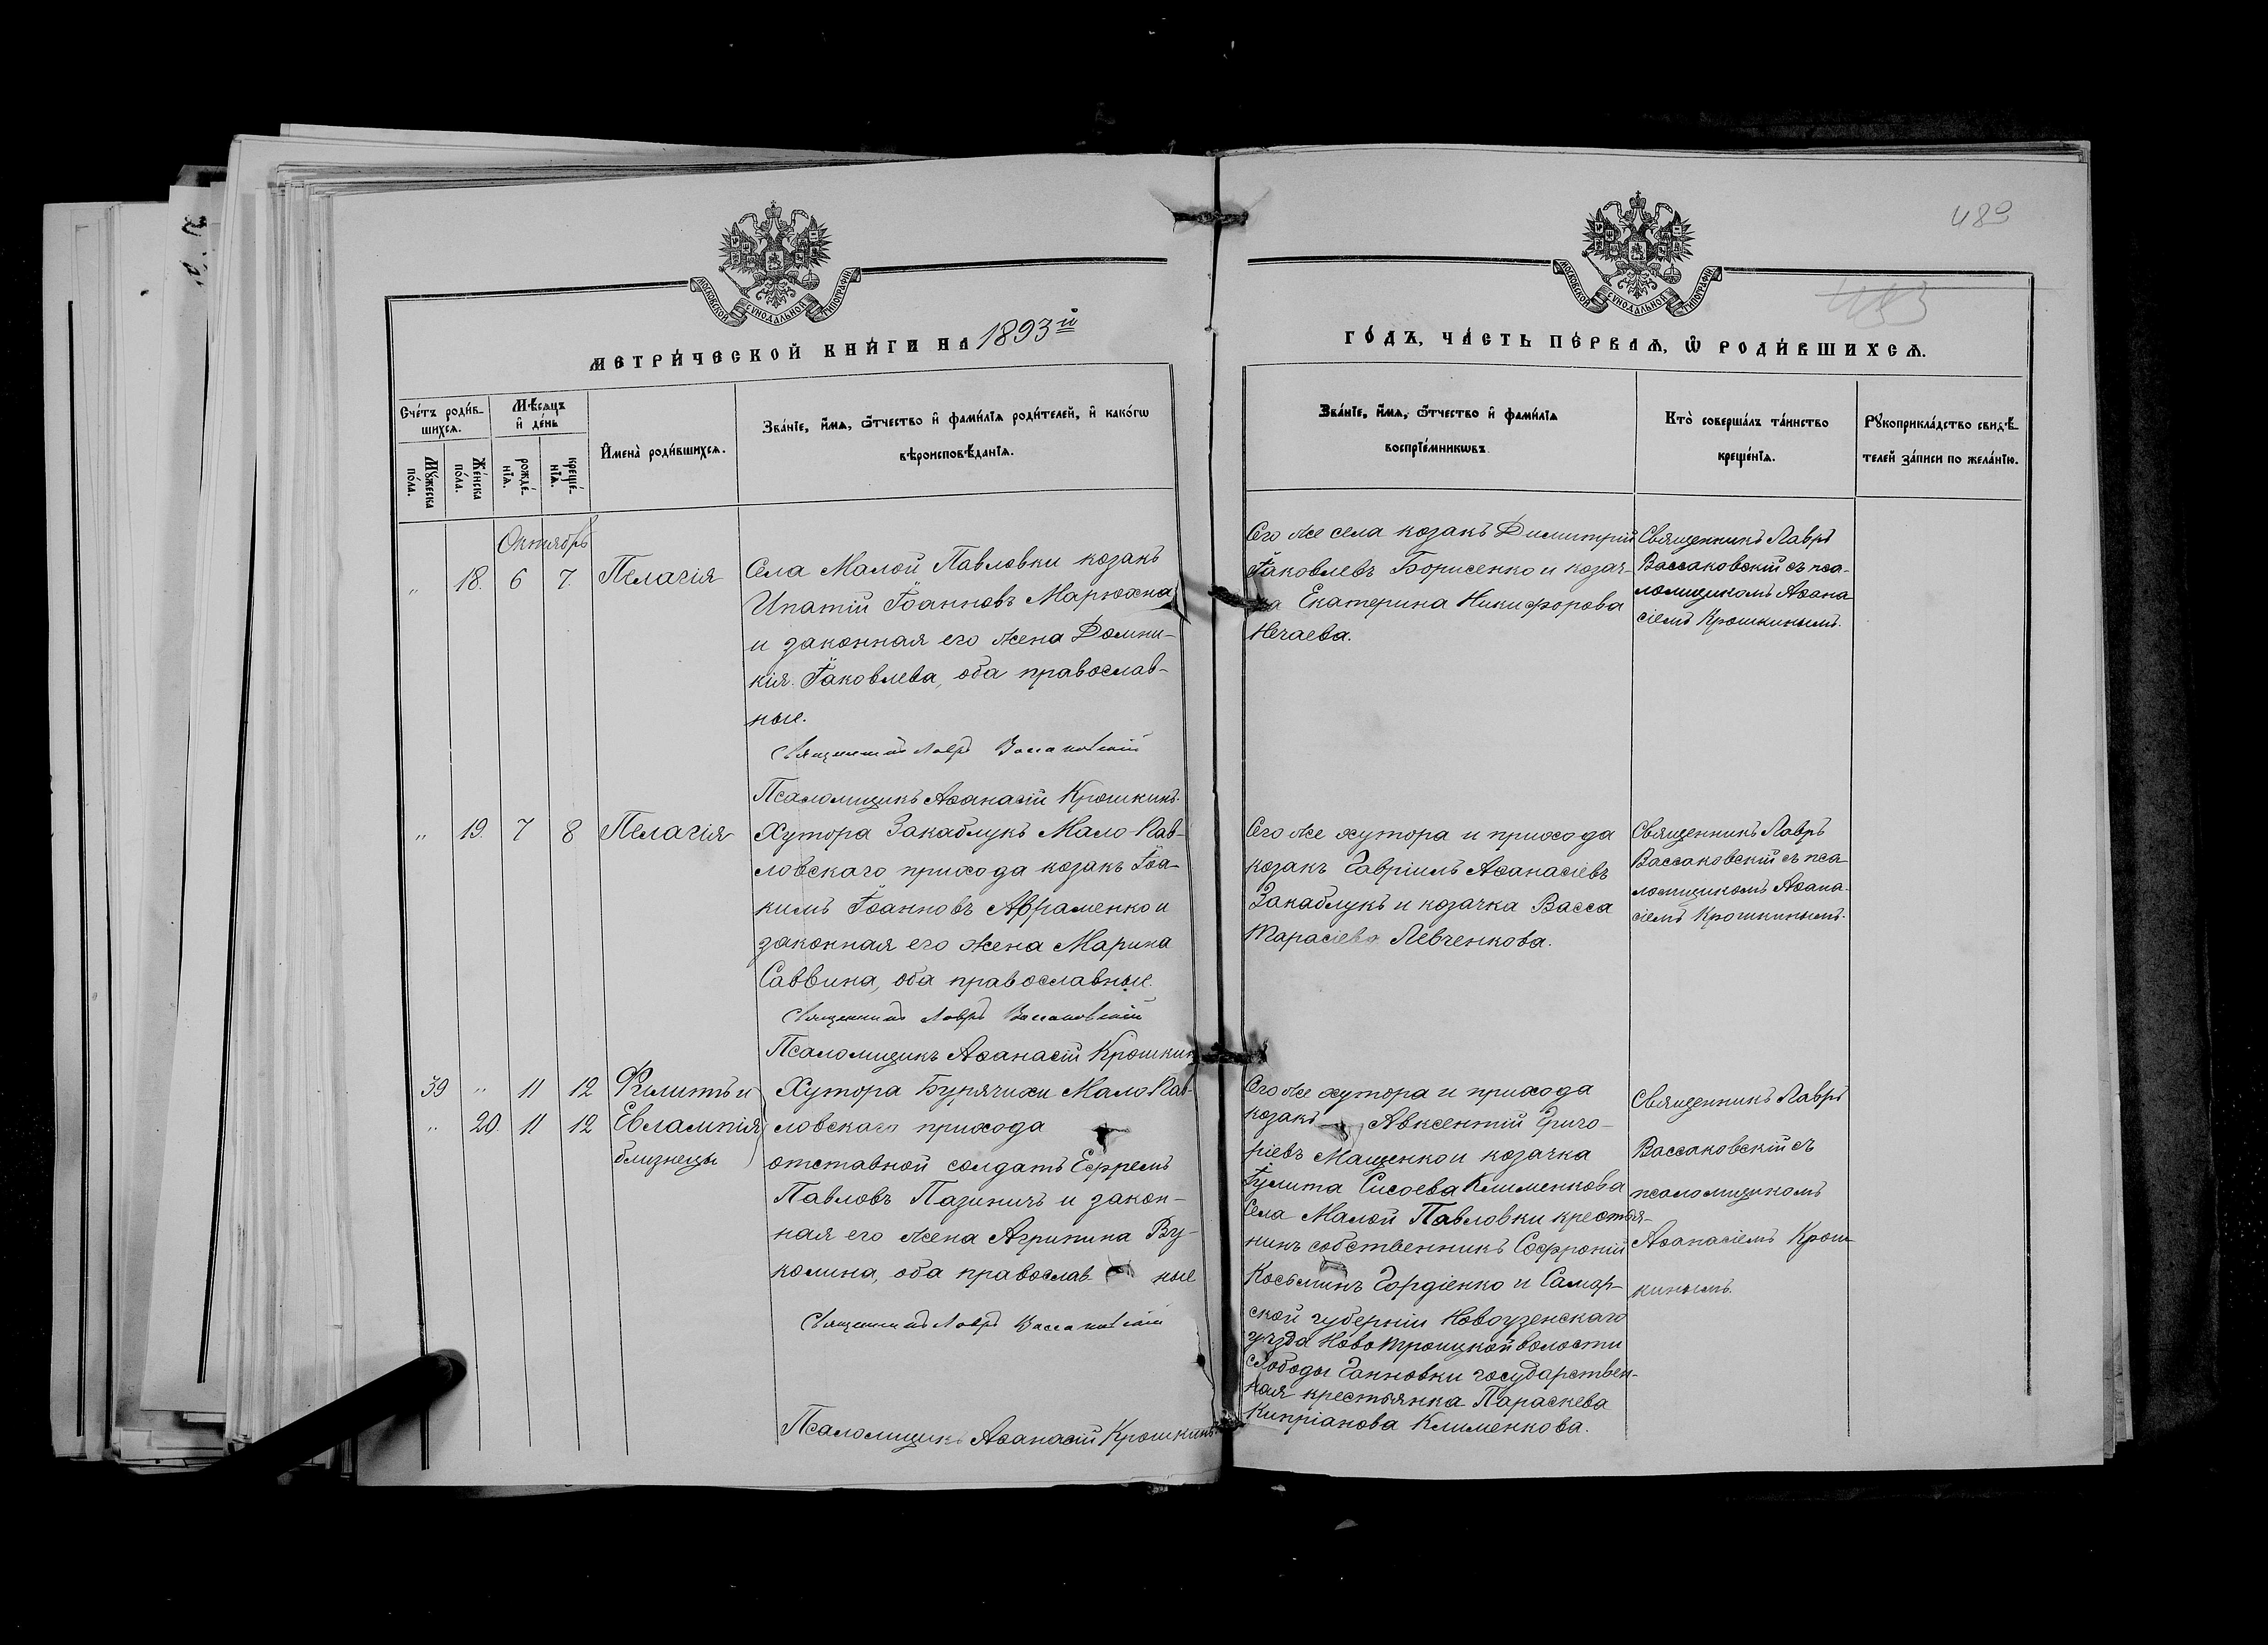 489
483
МОСКОВСКОЙ СѴНОДАЛЬНОЙ ТИПОГРАФІИ
МОСКОВСКОЙ СѴНОДАЛЬНОЙ ТИПОГРАФІИ
МЕТРИ́ЧЕСКОЙ КНИ́ГИ НА 1893й
ГО́ДЪ, ЧА́СТЬ ПЕ́РВАѦ, Ѽ РОДИ́ВШИХСѦ.
Сче́тъ роди́в-
шихсѧ.
Мꙋ́жеска
по́ла.
Же́нска
по́ла.
Мѣ́сѧцъ
и҆ де́нь
рожде́-
нїѧ.
креще́-
нїѧ.
И҆мена̀ роди́вшихсѧ.
Зва́нїе, и҆́мѧ, ѻ҆́тчество и҆ фами́лїѧ роди́телей, и҆ како́гѡ
вѣроисповѣ́данїѧ.
Зва́нїе, и҆́мѧ, ѻ҆́тчество и҆ фами́лїѧ
воспрїе́мникѡвъ.
Кто̀ соверша́лъ та́инство
креще́нїѧ.
Рꙋкоприкла́дство свидѣ́-
телей за́писи по жела́нїю.
Октябрь
" 18. 6 7. Пелагія
Села Малой Павловки козакъ
Ипатій Іоанновъ Марюхна
и законная его жена Домни-
кія Іаковлева, оба православ-
ные.
Священникъ Лавръ Вассаковскій
Псаломщикъ Аѳанасій Крошкинъ.
Сего же села козакъ Димитрій
Іаковлевъ Борисенко и козач-
ка Екатерина Никифорова
Нечаева.
Священникъ Лавръ
Вассаковскій съ пса-
ломщикомъ Аѳана-
сіемъ Крошкинымъ.
" 19. 7 8 Пелагія
Хутора Закаблукъ Мало-Пав-
ловскаго прихода козакъ Іоа-
кимъ Іоанновъ Авраменко и
законная его жена Марина
Саввина, оба православные.
Священникъ Лавръ Вассаковскій
Псаломщикъ Аѳанасій Крошкинъ
Сего же хутора и прихода
козакъ Гавріилъ Аѳанасіевъ
Закаблукъ и козачка Васса
Тарасіева Левченкова.
Священникъ Лавръ
Вассаковскій съ пса-
ломщикомъ Аѳана-
сіемъ Крошкинымъ.
39 " 11 12 Филиппъ и
" 20. 11 12 Евлампія
близнецы
Хутора Бурячихи Мало-Пав-
ловскаго прихода
отставной солдатъ Ефремъ
Павловъ Пазиничъ и закон-
ная его жена Агрипина Ву-
колина, оба православные
Священникъ Лавръ Вассаковскій
Псаломщикъ Аѳанасій Крошкинъ
Сего же хутора и прихода
козакъ Авксентій Григо-
ріевъ Мащенко и козачка
Іулита Сисоева Клименкова
Села Малой Павловки крестья-
нинъ собственникъ Софроній
Косьминъ Гордіенко и Самар-
ской губерніи Новоузенскаго
уѣзда Ново Троицкой волости
слободы Ганновки государствен-
ная крестьянка Параскева
Кипріанова Клименкова.
Священникъ Лавръ
Вассаковскій съ
псаломщикомъ
Аѳанасіемъ Крош-
кинымъ.